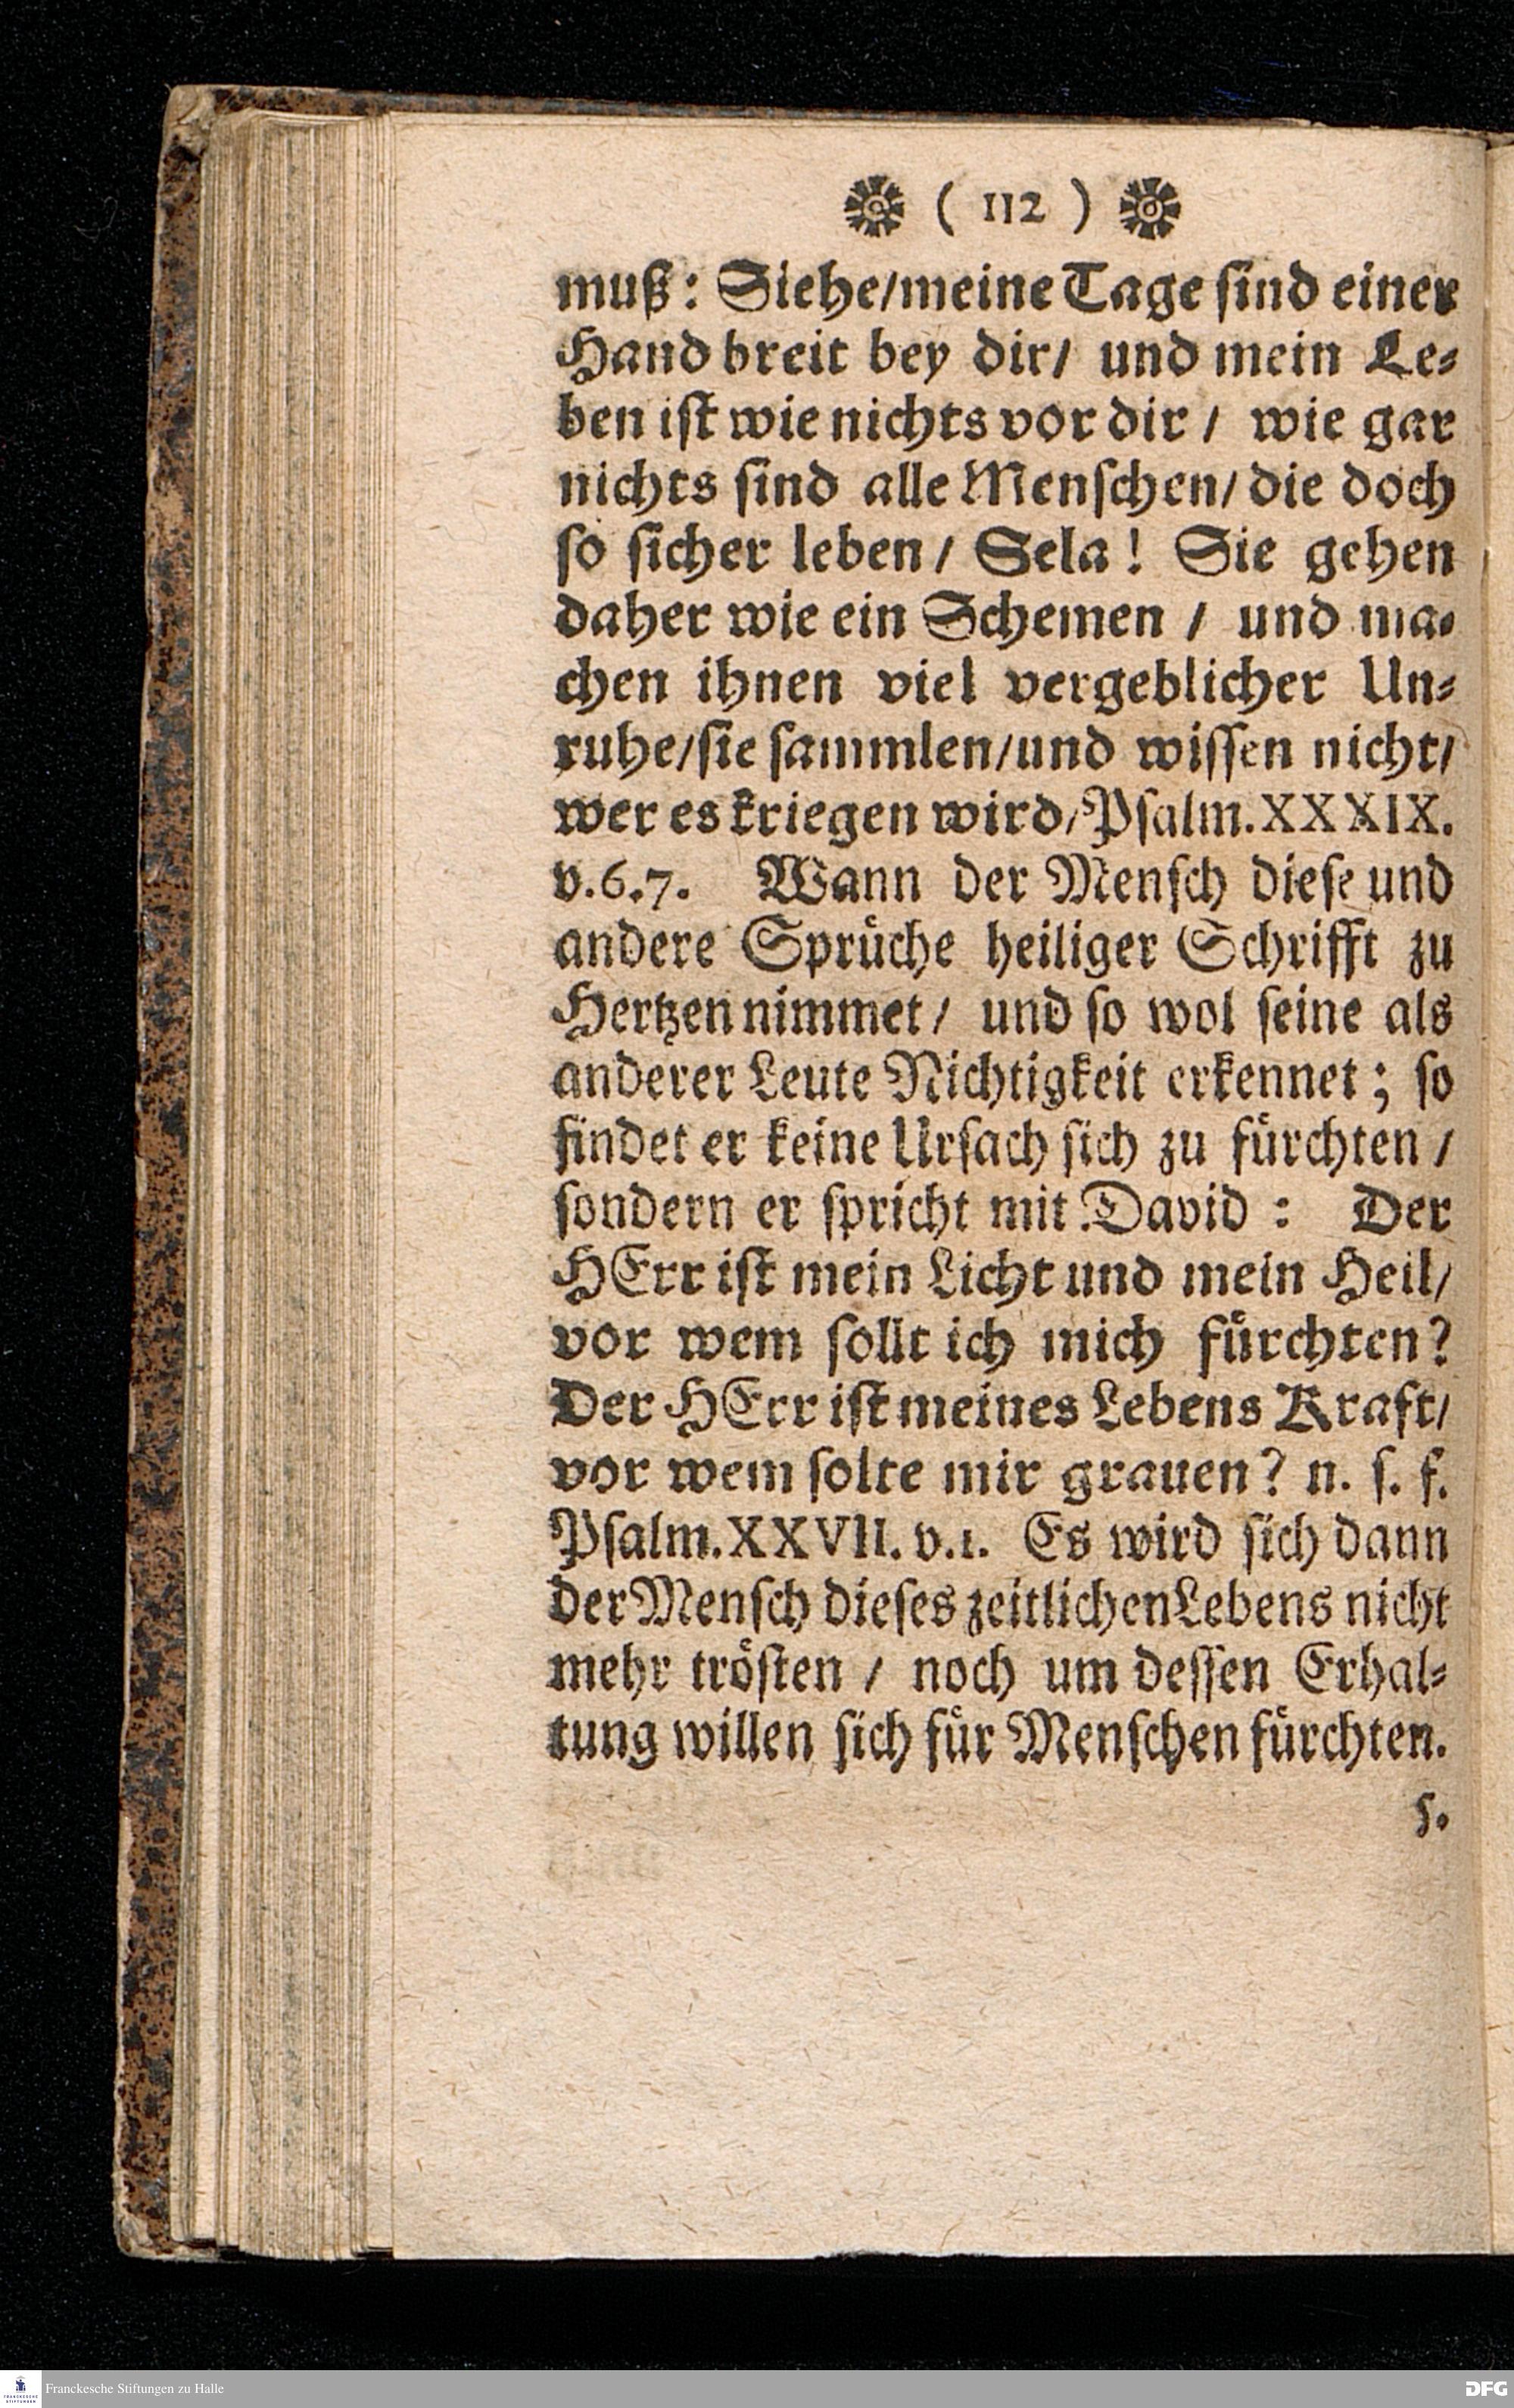 ( 112 )
muß: Siehe/meine Tage sind einer
Hand breit bey dir/ und mein Le-
ben ist wie nichts vor dir / wie gar
nichts sind alle Menschen/ die doch
so sicher leben / Sela! Sie gehen
daher wie ein Schemen / und ma-
chen ihnen viel vergeblicher Un-
ruhe/sie sammlen/und wissen nicht/
wer es kriegen wird/Psalm.XXXIX.
v.6.7. Wann der Mensch diese und
andere Sprüche heiliger Schrifft zu
Hertzen nimmet / und so wol seine als
anderer Leute Nichtigkeit erkennet; so
findet er keine Ursach sich zu fürchten /
sondern er spricht mit David : Der
HErr ist mein Licht und mein Heil/
vor wem sollt ich mich fürchten?
Der HErr ist meines Lebens Kraft/
vor wem solte mir grauen? n. s. f.
Psalm.XXVII. v.1. Es wird sich dann
der Mensch dieses zeitlichen Lebens nicht
mehr trösten / noch um dessen Erhal-
tung willen sich für Menschen fürchten.
5.
Franckesche Stiftungen zu Halle
DFG